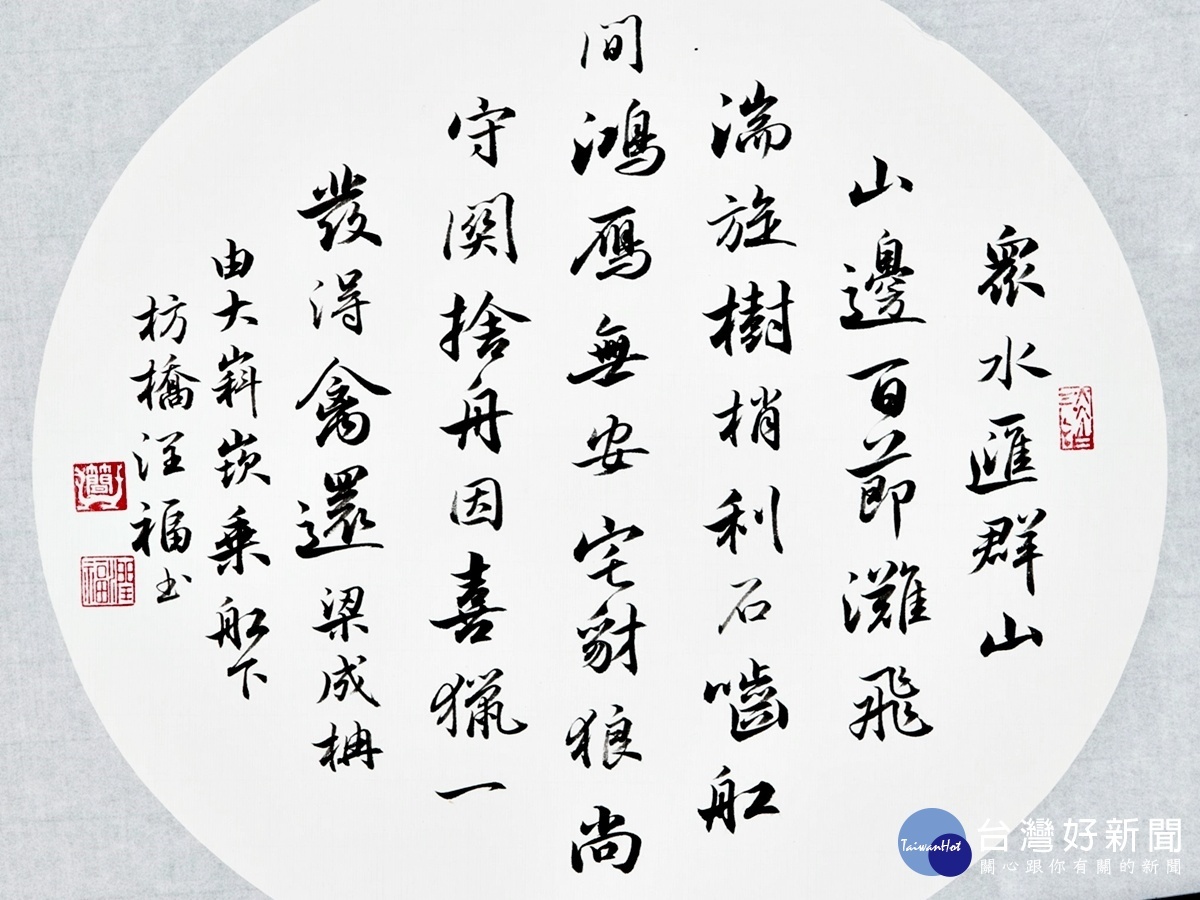 眾水匯群山
山邊百節灘飛
湍旋樹梢利石嚙舡
間鴻鴈無安宅豺狼尚
守關捨舟因喜獵一
發得禽還梁成枏
由大嵙崁乗舡下
枋橋福书
簡
TaiwanHot
台灣好新聞
關心跟你有關的新聞